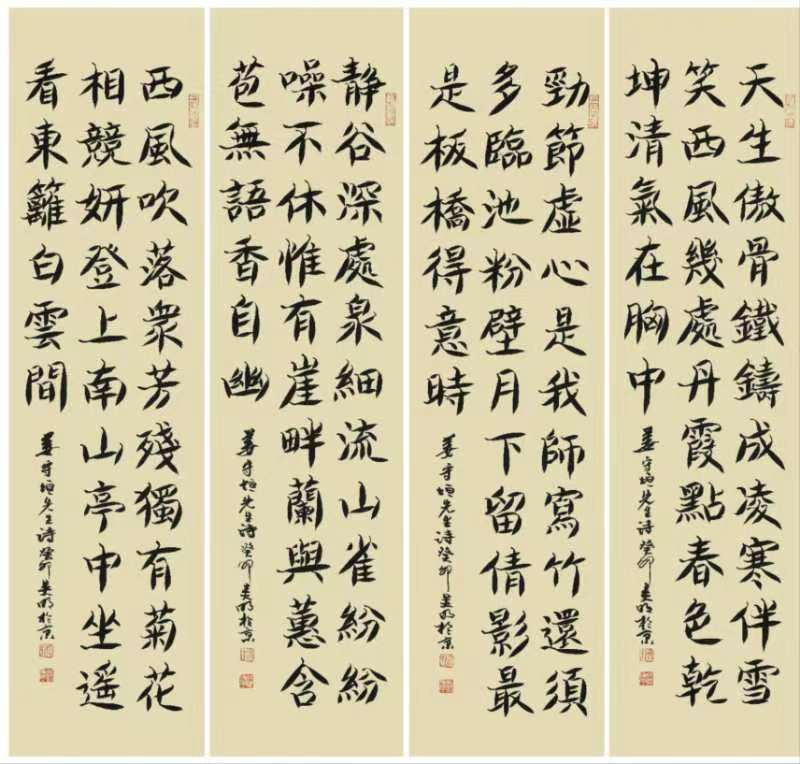 天生傲骨鐵鑄成凌寒伴雪
笑西風幾處丹霞點春色乾
坤清氣在胸中
姜守垣先生诗癸卯於京
勁節虛心是我師寫竹還須
多臨池粉壁月下留倩影最
是板橋得意時
姜守垣先生诗癸卯於京
静谷深處泉細流山雀紛紛
噪不休惟有崖畔蘭與蕙含
苞無語香自幽
姜守垣先生诗癸卯於京
西風吹落衆芳殘獨有菊花
相競妍登上南山亭中坐遥
看東籬白雲間
姜守垣先生诗癸卯於京